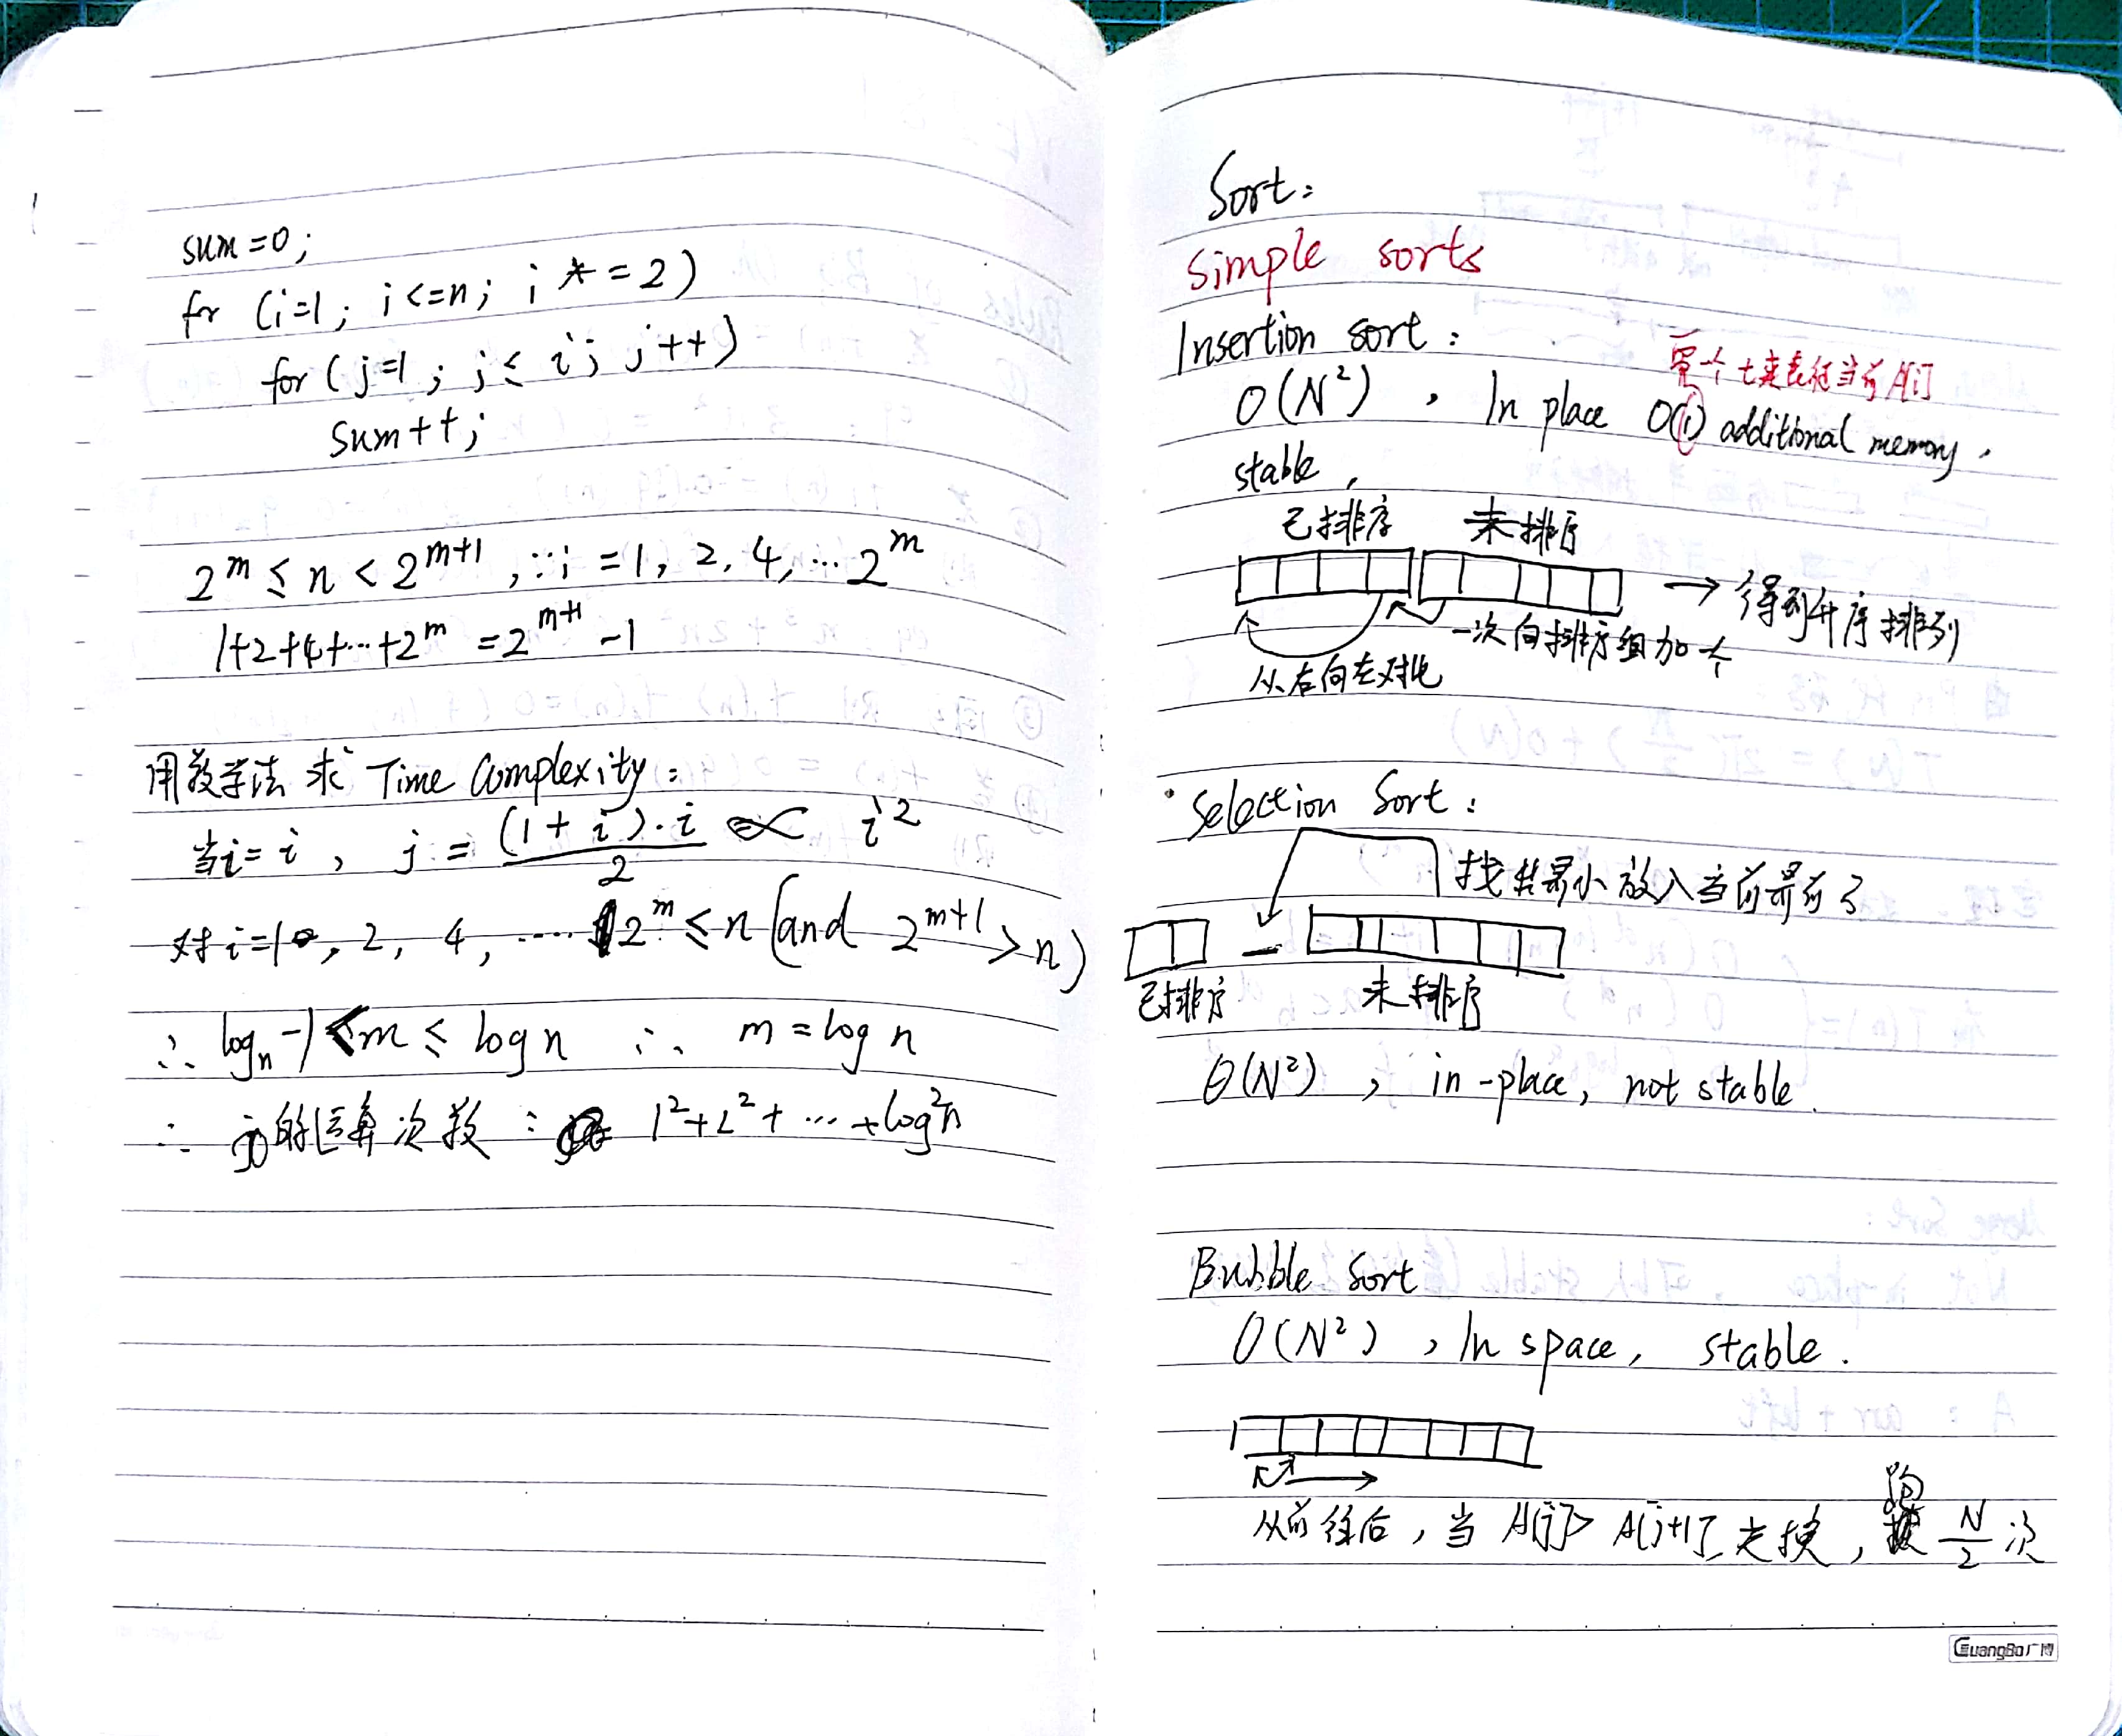 sum=0;
for (i=1; i<=n; i *= 2)
for (j=1; j≤ i; j++)
sum++;
2^m ≤ n < 2^{m+1}, ∵i = 1, 2, 4, ... 2^m
1+2+4+...+2^m = 2^{m+1} -1
用数学法 求 Time Complexity:
当i= i, j = (1+i)·i / 2 ∝ i^2
对 i=1, 2, 4, ..... 2^m ≤ n (and 2^{m+1} > n)
∴ log n -1 < m ≤ log n ∴ m = log n
∴ j的运算次数: 1^2+2^2+ ... +log^2 n
Sort:
Simple sorts
Insertion sort:
需个
当前A[i]
O(N^2), In place O(1) additional memory.
stable,
已排序 未排序
→ 得到升序排列
一次向排序组加一个
从右向左对比
Selection Sort:
找其最小放入当前最前了
已排序 未排序
Θ(N^2), in-place, not stable.
Bubble Sort
O(N^2), In space, stable.
从前往后, 当 A[j]> A[j+1], 交换, 跑 N/2 次
GuangBo广博